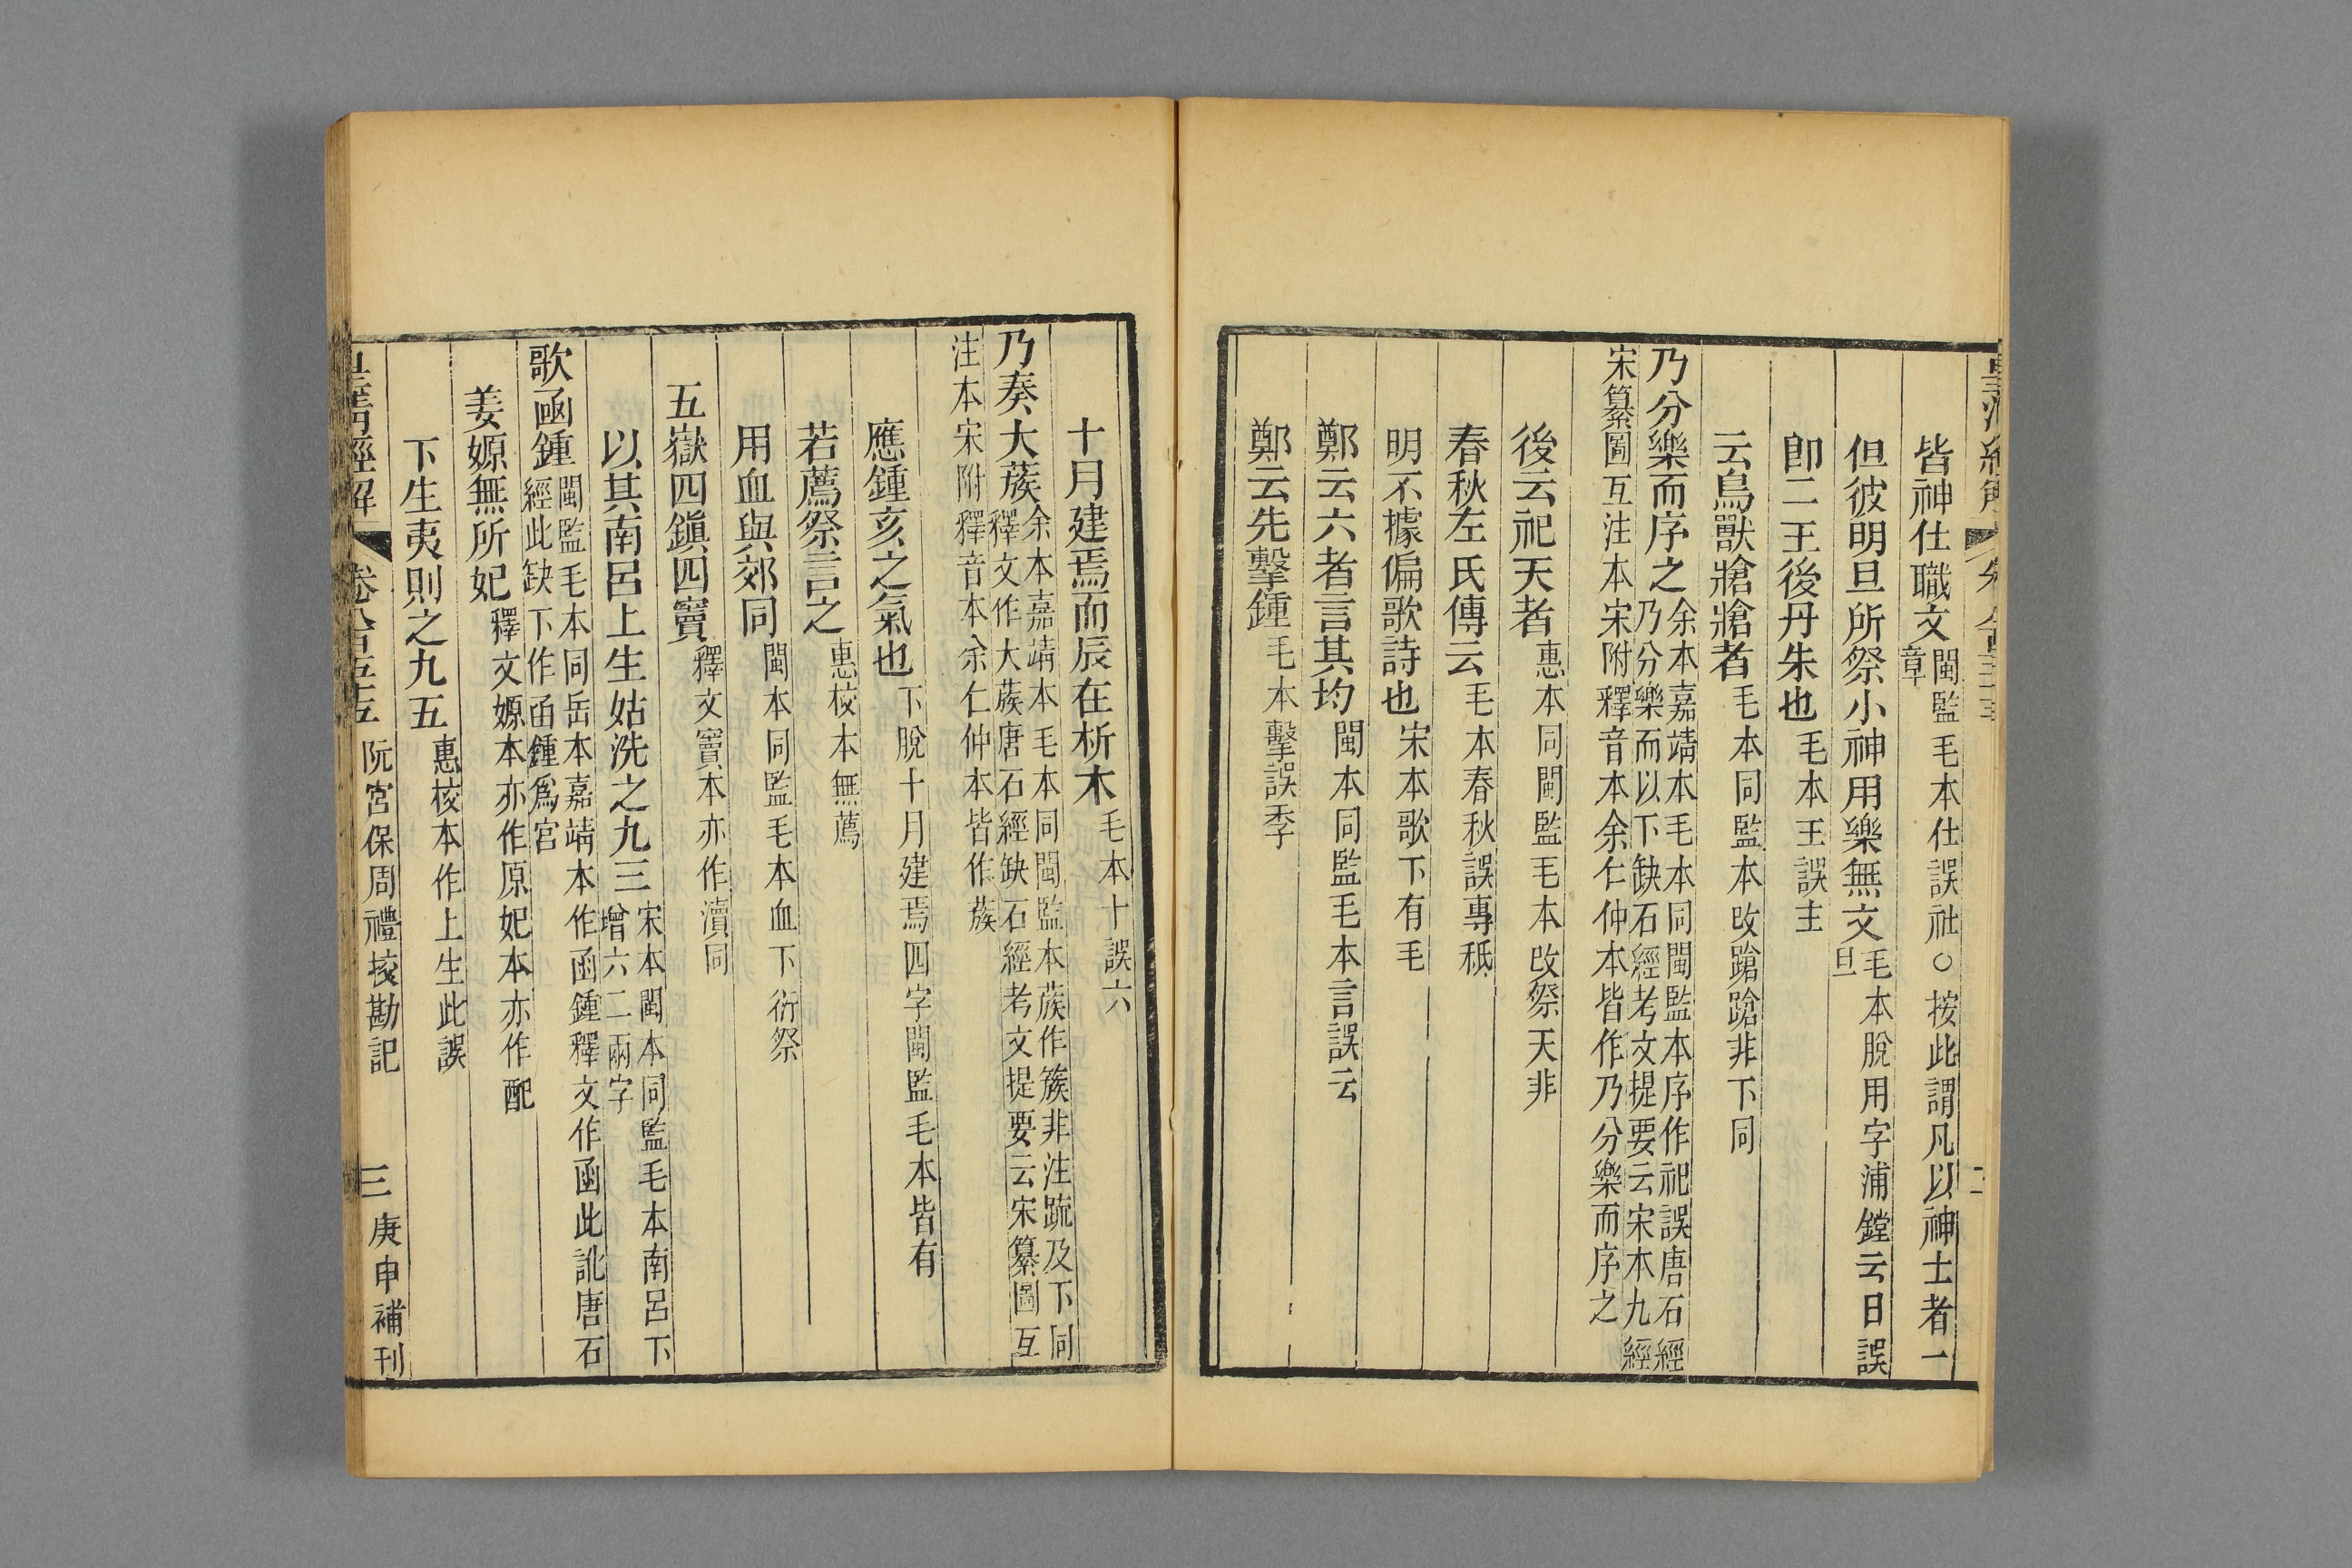 皆神仕職文閩監毛本仕誤社○按此謂凡以神士者一章
但彼明旦所祭小神用樂無文毛本脫用字浦鏜云日誤旦
卽二王後丹朱也毛本王誤主
云鳥獸牄牄者毛本同監本改蹌蹌非下同
乃分樂而序之余本嘉靖本毛本同閩監本序作祀誤唐石經乃分樂而以下缺石經考文提要云宋本九經
宋纂圖互注本宋附釋音本余仁仲本皆作乃分樂而序之
後云祀天者惠本同閩監毛本改祭天非
春秋左氏傳云毛本春秋誤專秪
明不據偏歌詩也宋本歌下有毛
鄭云六者言其均閩本同監毛本言誤云
鄭云先擊鍾毛本擊誤季
十月建焉而辰在析木毛本十誤六
乃奏大蔟余本嘉靖本毛本同閩監本蔟作簇非注疏及下同釋文作大蔟唐石經缺石經考文提要云宋纂圖互
注本宋附釋音本余仁仲本皆作蔟
應鍾亥之氣也下脫十月建焉四字閩監毛本皆有
若薦祭言之惠校本無薦
用血與郊同閩本同監毛本血下衍祭
五嶽四鎭四竇釋文竇本亦作瀆同
以其南呂上生姑洗之九三宋本閩本同監毛本南呂下增六二兩字
歌函鍾閩監毛本同岳本嘉靖本作函鍾釋文作函此訛唐石經此缺下作函鍾爲宮
姜嫄無所妃釋文嫄本亦作原妃本亦作配
下生夷則之九五惠校本作上生此誤
經解 卷八百五十五 阮宮保周禮挍勘記 三 庚申補刊